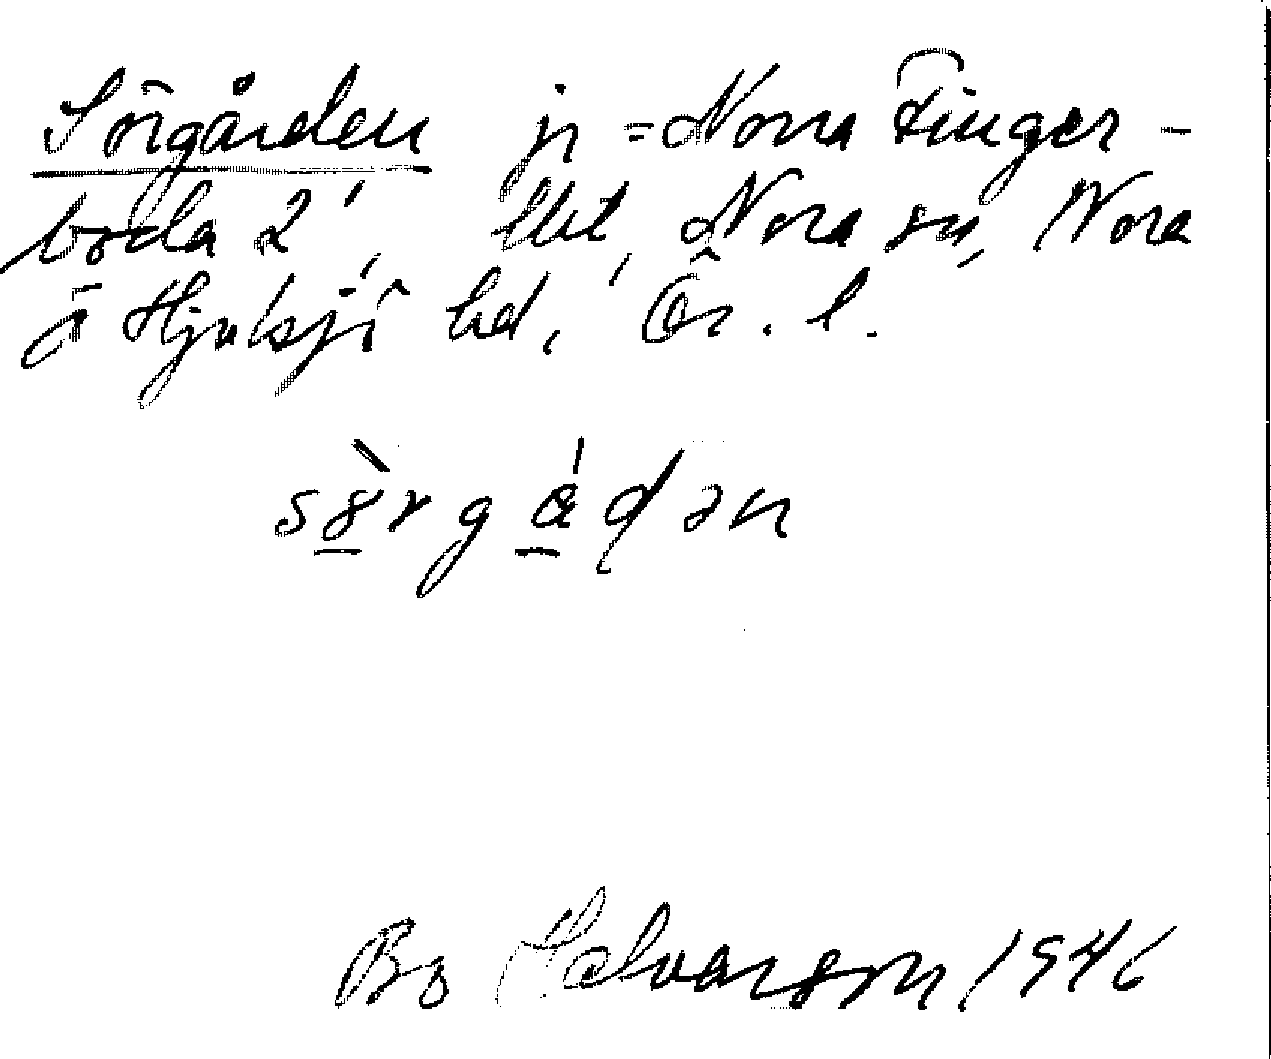 Sörgården jr = Norra Finger-
boda 2¹, ebt, Nora sn, Nora
o Hjulsjö hd, Ör. l.
sörgådən
Bo Halvarson 1946